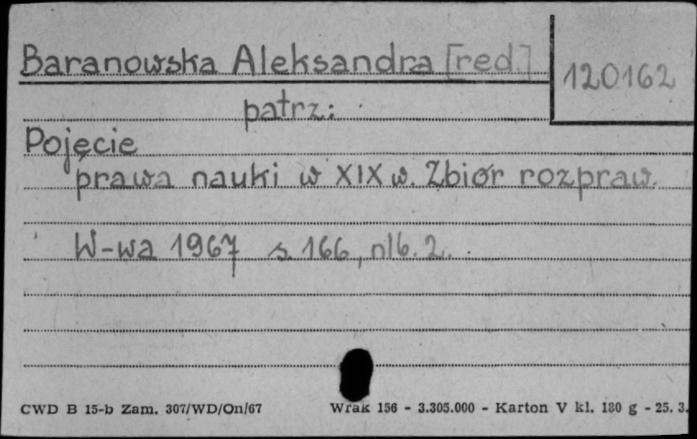 Baranowska Aleksandra [red.]
120162
patrz:
Pojęcie
prawa nauki w XIX w. Zbiór rozpraw.
W-wa 1967 s. 166, nlb. 2.
CWD B 15-b Zam. 307/WD/On/67 Wrak 156 - 3.305.000 - Karton V kl. 180 g - 25. 3.